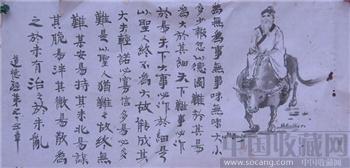 為無為事無事味無味大小
多少報怨以德圖難於其易
為大於其細天下難事必作
於易天下大事必作於細是
以聖人終不為大故能成其
大夫輕諾必寡信多易必多
難是以聖人猶難之故終無
難其安易持其未兆易謀
其脆易泮其微易散為
之於未有治之於未亂
道德經第
中国收藏网
www.socang.com
中国收藏网